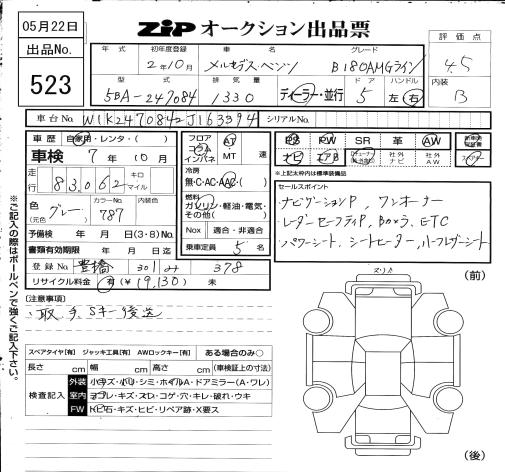 05月22日
ZIP オークション出品票
出品No.
523
年式 初年度登録 車名 グレード
2年10月 メルセデス・ベンツ B180AMGライン
型式 排気量 ドア ハンドル
5BA-247084 1330 ディーラー・並行 5 左 右
評価点
4.5
内装
B
車台No. W1K2470842J163394 シリアルNo.
車歴 自家用・レンタ・( )
車検 7年10月
走行 83,062 キロ マイル
色 (元色) グレー カラーNo. 787
予備検 年 月 日(3・8)No.
書類有効期限 年 月 日迄
登録No. 豊橋 301 み 378
リサイクル料金 有(¥19,130) 未
フロア コラム インパネ AT MT 速
冷房 無・C・AC・AAC・( )
燃料 ガソリン・軽油・電気・その他( )
Nox 適合・非適合
乗車定員 5 名
PS PW SR 革 AW
ナビ エアB 社外ナビ 社外AW
※上記太枠内は標準装備品
セールスポイント
ナビゲーションP, ワンオーナー
レーダーセーフティP, Boxライト, ETC
パワーシート, シートヒーター, ハーフレザーシート
[注意事項]
取、予 Sキー後送
スペアタイヤ[有] ジャッキ工具[有] AWロックキー[有] ある場合のみ○
長さ cm 幅 cm 高さ cm (車検証上の寸法)
検査記入
外装 小キズ・小凹・シミ・ホイルA・ドアミラー(A・ワレ)
室内 ヨゴレ・キズ・スレ・コゲ・穴・キレ・破れ・ウキ
FW トビ石・キズ・ヒビ・リペア跡・X要ス
※ご記入の際はボールペンで強くご記入下さい。
スリ小
(前)
(後)